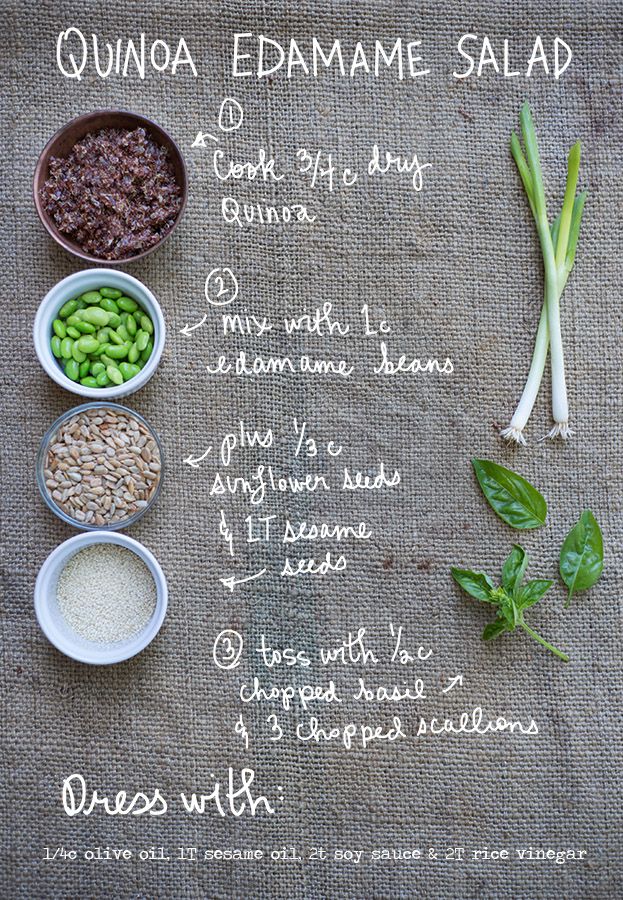 QUINOA EDAMAME SALAD
1
Cook 3/4 c dry
Quinoa
2
mix with 1c
edamame beans
plus 1/3 c
sunflower seeds
& 1T sesame
seeds
3 toss with 1/2c
chopped basil
& 3 chopped scallions
Dress with:
1/4c olive oil, 1T sesame oil, 2t soy sauce & 2T rice vinegar